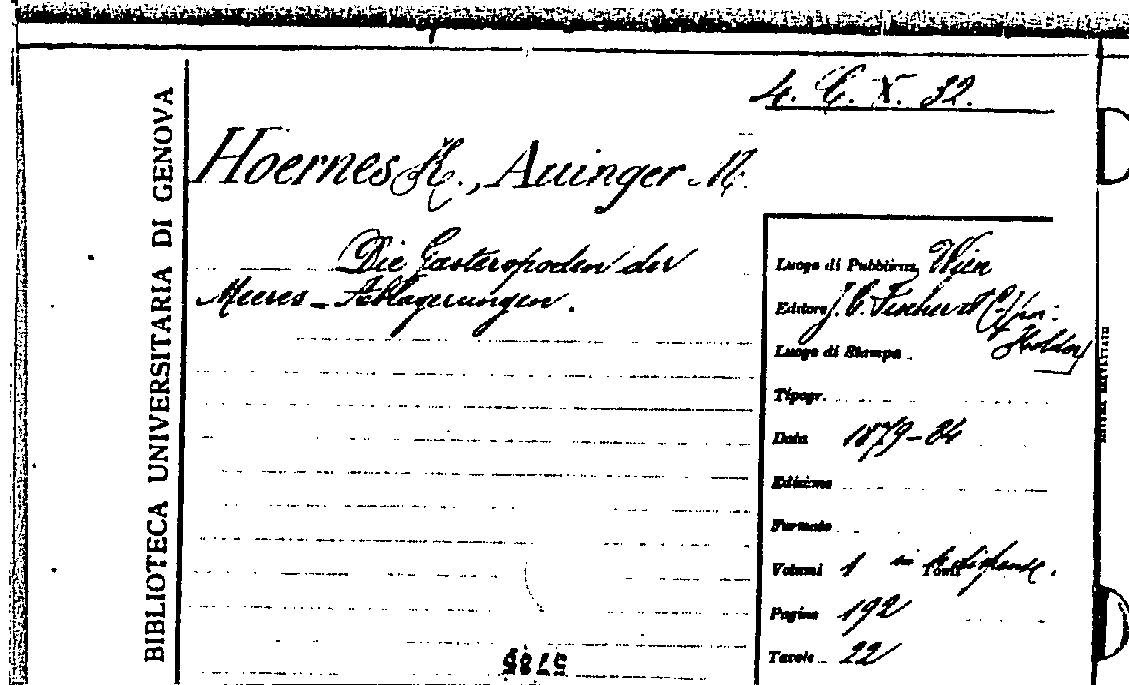 4. C. X. 32.
BIBLIOTECA UNIVERSITARIA DI GENOVA
Hoernes R., Auinger M.
Die Gasteropoden der
Meeres-Ablagerungen.
Luogo di Pubblicaz. Wien
Editore J. C. Fischer et
Holder
Luogo di Stampa
Tipogr.
Data 1879-84
Edizione
Formato
Volumi 1 in Tomi
Pagine 192
Tavole 22